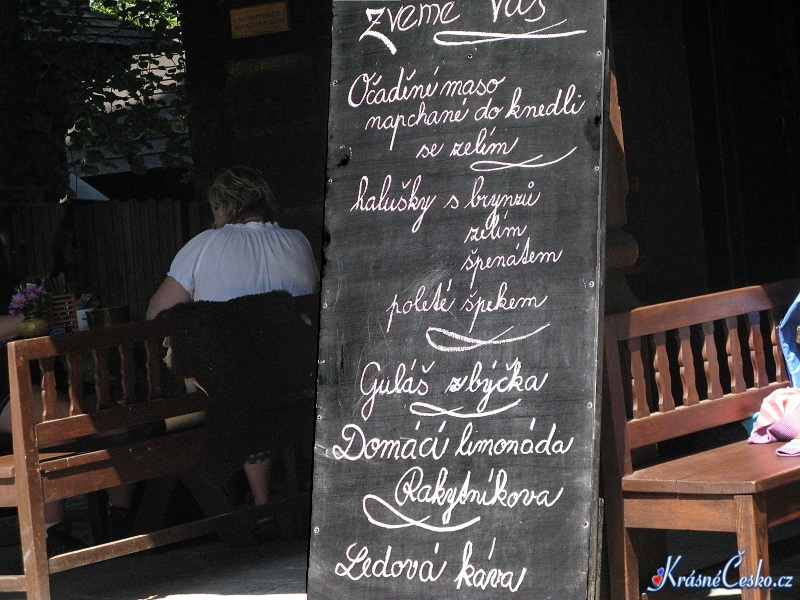 zveme Vás
Očaděné maso
napchané do knedlí
se zelím
halušky s brynzů
zelím
špenátem
poleté špekem
Guláš z býčka
Domácí limonáda
Rakytníkova
Ledová káva
KrásnéČesko.cz